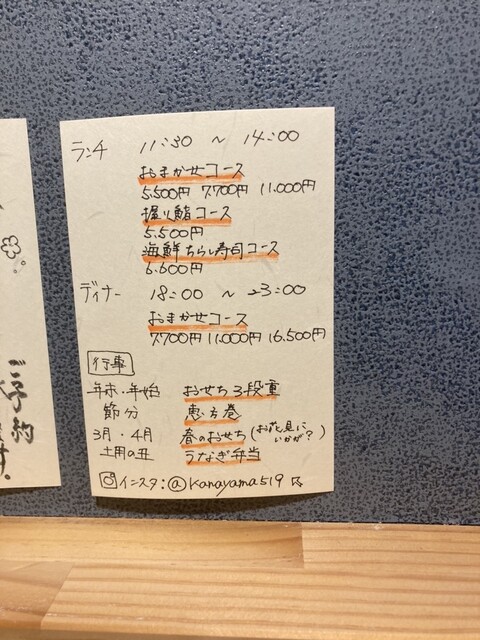 ランチ 11:30 ~ 14:00
おまかせコース
5.500円 7.700円 11.000円
握り鮨コース
5.500円
海鮮ちらし寿司コース
6.600円
ディナー 18:00 ~ 23:00
おまかせコース
7.700円 11.000円 16.500円
行事
年末・年始 おせち3段重
節分 恵方巻
3月・4月 春のおせち(お花見にいかが?)
土用の丑 うなぎ弁当
インスタ:@kanayama519
ご予約
す。